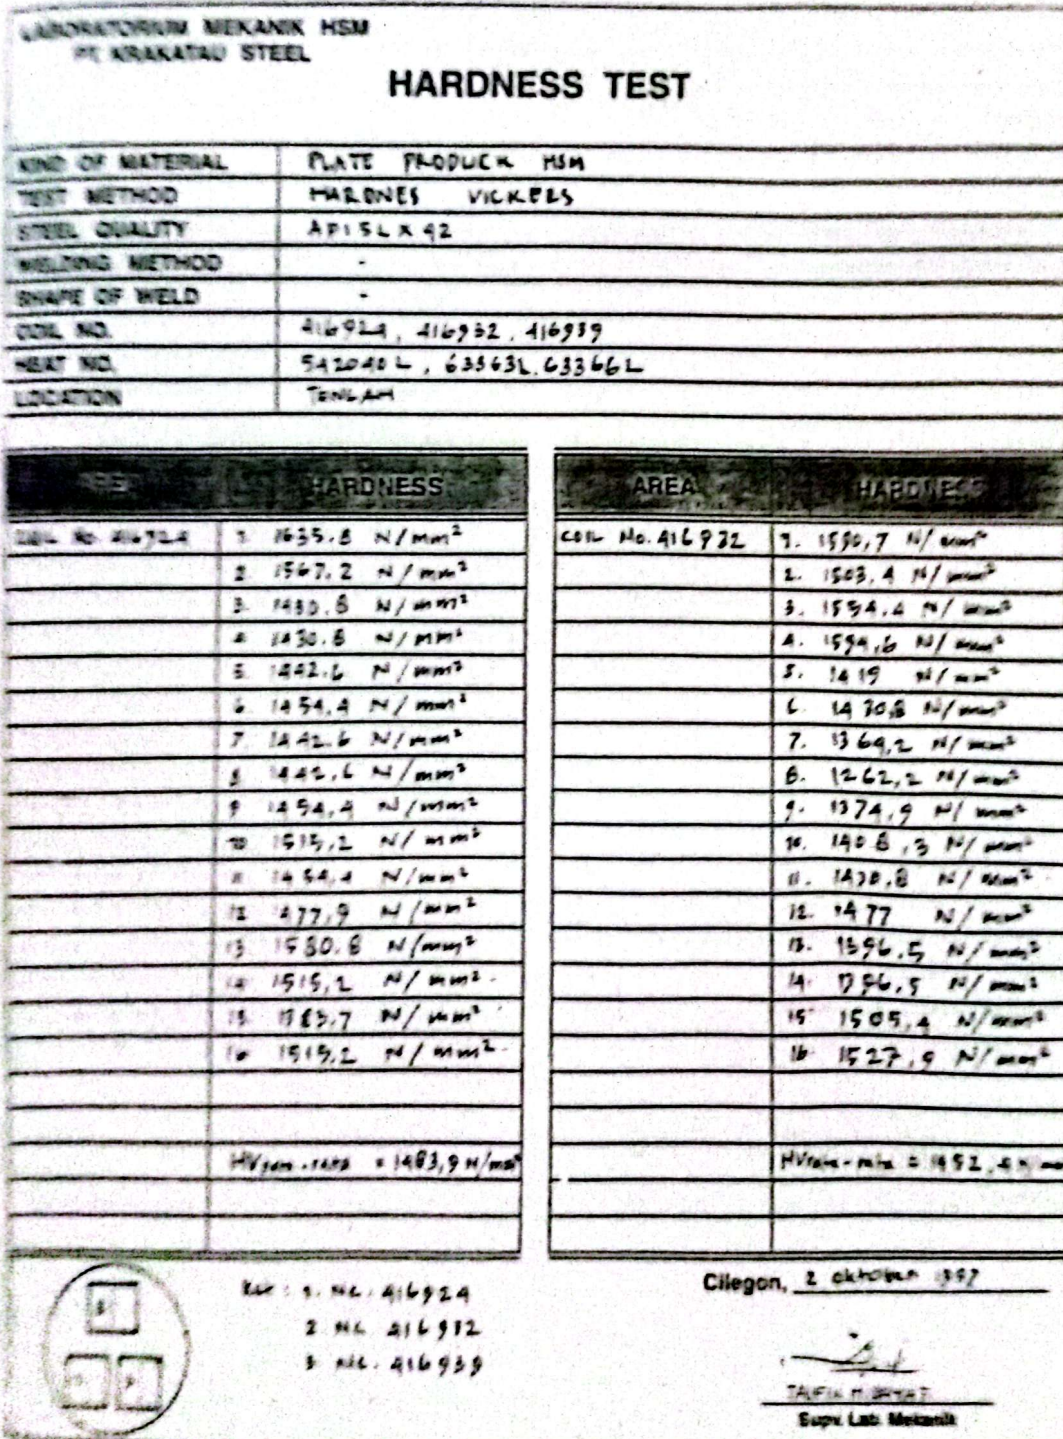 LABORATORIUM MEKANIK HSM
PT. KRAKATAU STEEL
HARDNESS TEST
KIND OF MATERIAL PLATE PRODUCK HSM
TEST METHOD HARDNES VICKERS
STEEL QUALITY API 5L X 42
WELDING METHOD -
SHAPE OF WELD -
COIL NO. 416924, 416932, 416939
HEAT NO. 542040L, 633631, 633661
LOCATION TENGAH
HARDNESS
COIL No. 416924 1. 1635.8 N/mm²
2. 1567.2 N/mm²
3. 1430.8 N/mm²
4. 1430.8 N/mm²
5. 1442.6 N/mm²
6. 1454.4 N/mm²
7. 1442.6 N/mm²
8. 1442,6 N/mm²
9. 1454,4 N/mm²
10. 1515,2 N/mm²
11. 1454,4 N/mm²
12. 1477,9 N/mm²
13. 1580.8 N/mm²
14. 1515,2 N/mm²
15. N/mm²
16. 1515,2 N/mm²
HV rata-rata = 1483,9 N/mm²
AREA HARDNESS
COIL No. 416932 1. N/mm²
2. 1503,4 N/mm²
3. N/mm²
4. N/mm²
5. 1419 N/mm²
6. 1430,8 N/mm²
7. 1369,2 N/mm²
8. 1262,2 N/mm²
9. 1374,9 N/mm²
10. 1408,3 N/mm²
11. 1430,8 N/mm²
12. 1477 N/mm²
13. 1396,5 N/mm²
14. 1396,5 N/mm²
15. 1505,4 N/mm²
16. 1527,9 N/mm²
HV rata-rata =
Ket : 1. NC. 416924
2. NC. 416932
3. NC. 416939
Cilegon, 2 oktober 1997
TAUFIK HIDAYAT
Supv. Lab. Mekanik